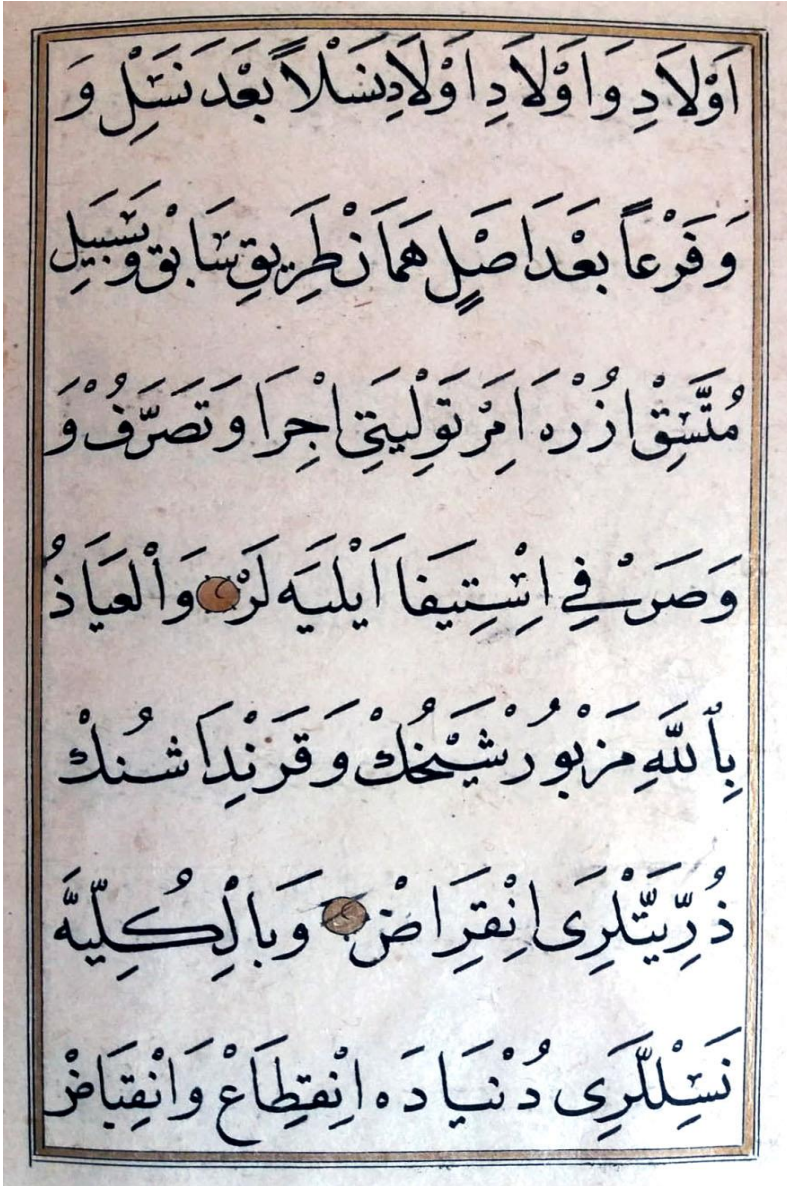 اَوْلَادِ وَاَوْلَادِ اَوْلَادِ نَسْلاً بَعْدَ نَسْلٍ وَ
وَفَرْعاً بَعْدَ اَصْلٍ هَمَانْ طَرِيقِ سَابِقْ وَسَبِيلِ
مُتَّسِقْ اُزْرَه اَمِرْ تَوْلِيَتِى اِجْرَا وَتَصَرُّفْ وَ
وَصَرْفِ اِسْتِيفَا اَيْلَيَه لَرْ وَالْعَيَاذُ
بِٱللهِ مَزْبُورْ شَيْخُكْ وَقَرَنْدَاشُنُكْ
ذُرِّيَّتْلَرِى اِنْقِرَاضْ وَبِالْكُلِّيَّه
نَسِلْلَرِى دُنْيَادَه اِنْقِطَاعْ وَانْقِبَاضْ